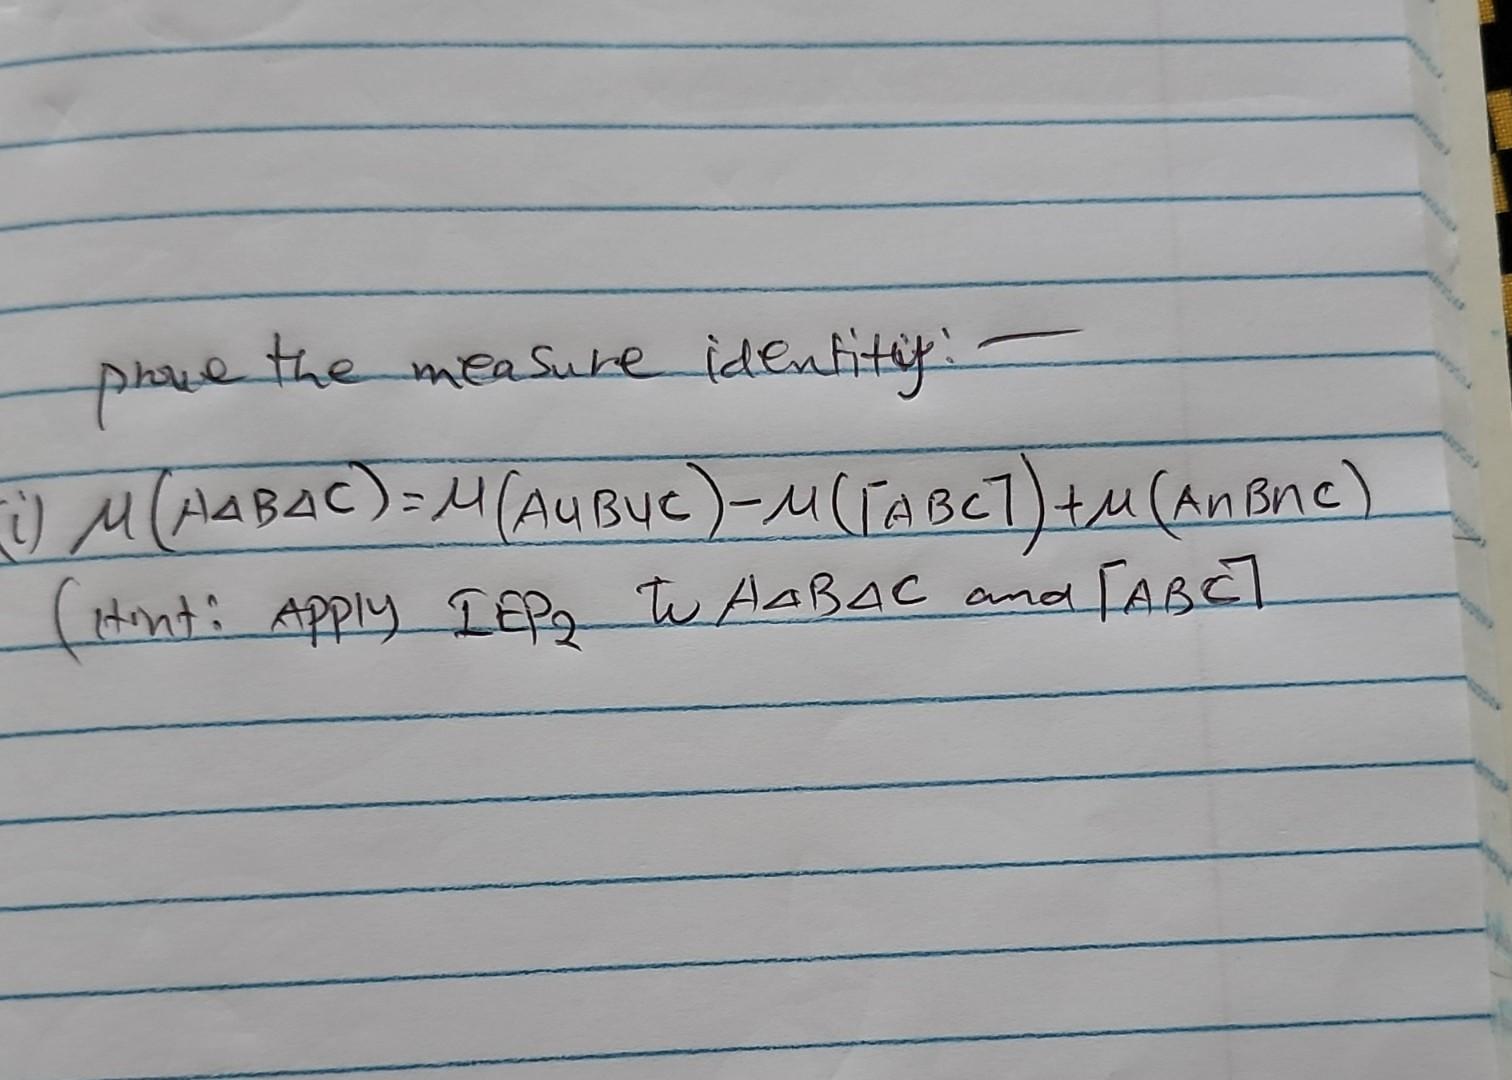 prove the measure identity: —
i) μ(A△B△C)=μ(A∪B∪C)-μ(⌈ABC⌉)+μ(A∩B∩C)
(Hint: Apply IEP₂ to A△B△C and ⌈ABC⌉